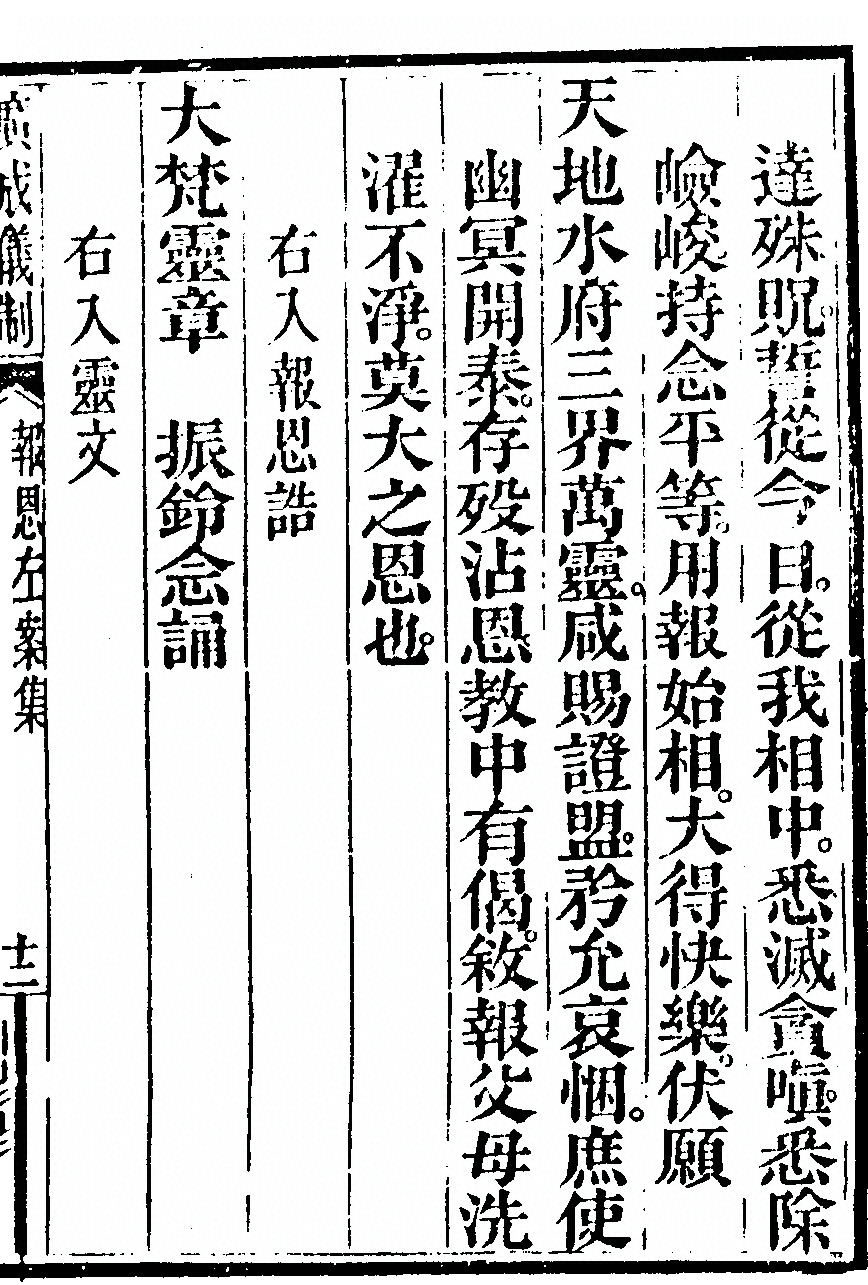 達殊貺。誓從今日。從我相中。悉滅貪嗔。悉除
嶮峻。持念平等。用報始相。大得快樂。伏願
天地水府三界萬靈。咸賜證盟。矜允哀悃。庶使
幽冥開泰。存歿沾恩。教中有偈。敘報父母洗
濯不淨。莫大之恩也。
右入報恩誥
大梵靈章　振鈴念誦
右入靈文
廣成儀制　報恩左案集　十二